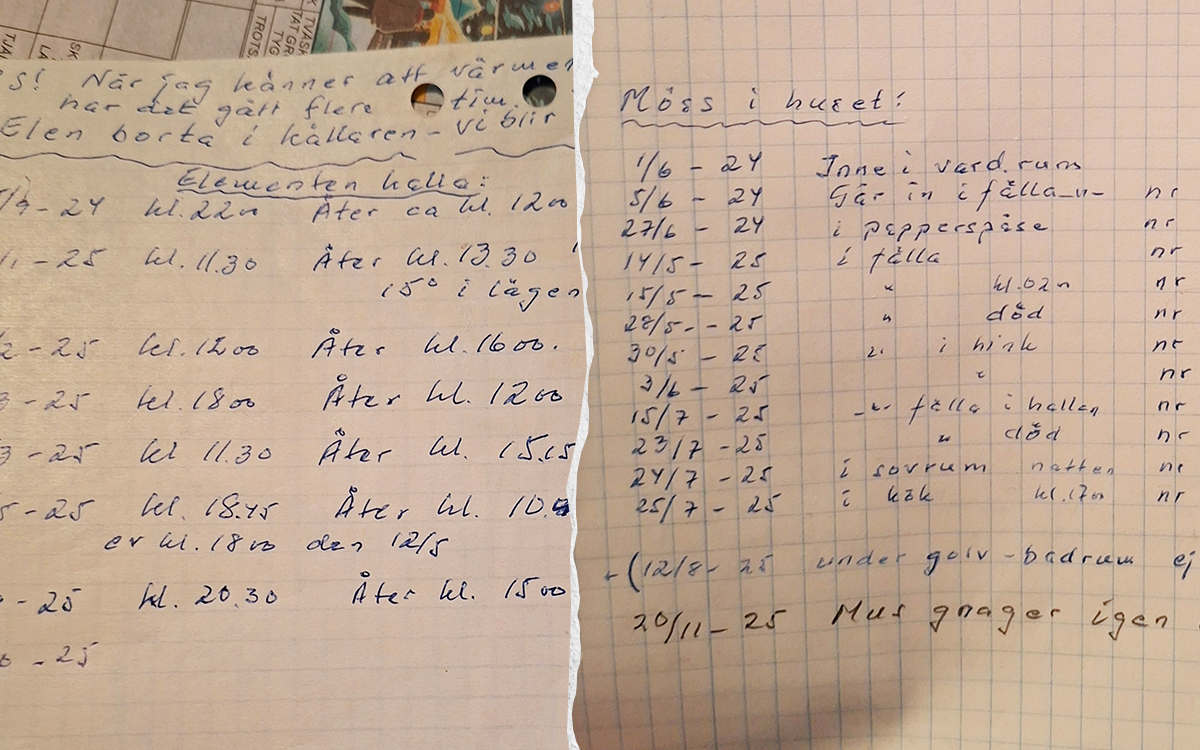 TVÄSK
TAT GR
TYG
TROTS
TJÄ
S! När jag känner att värmen
har det gått flere tim.
Elen borta i källaren - vi blir
Elementen kalla:
- 24 kl. 22 00 Åter ca kl. 12 00
- 25 kl. 11.30 Åter kl. 13.30
15° i lägen
- 25 kl. 12 00 Åter kl. 16 00.
3 - 25 kl. 18 00 Åter kl. 12 00
3 - 25 kl 11.30 Åter kl. 15.15
5 - 25 kl. 18.45 Åter kl. 10.
er kl. 18 00 den 12/5
- 25 kl. 20.30 Åter kl. 15 00
- 25
Möss i huset:
1/6 - 24 Inne i vard.rum
5/6 - 24 Går in i fälla -n- nr
27/6 - 24 i papperspåse nr
14/5 - 25 i fälla nr
15/5 - 25 " kl. 02 nr
28/5 - - 25 " död nr
30/5 - 25 " i hink nr
3/6 - 25 " nr
15/7 - 25 -"- fälla i hallen nr
23/7 - 25 " död nr
24/7 - 25 i sovrum natten nr
25/7 - 25 i kök kl. 17 00 nr
(12/8 - 25 under golv - badrum ej
20/11 - 25 Mus gnager igen